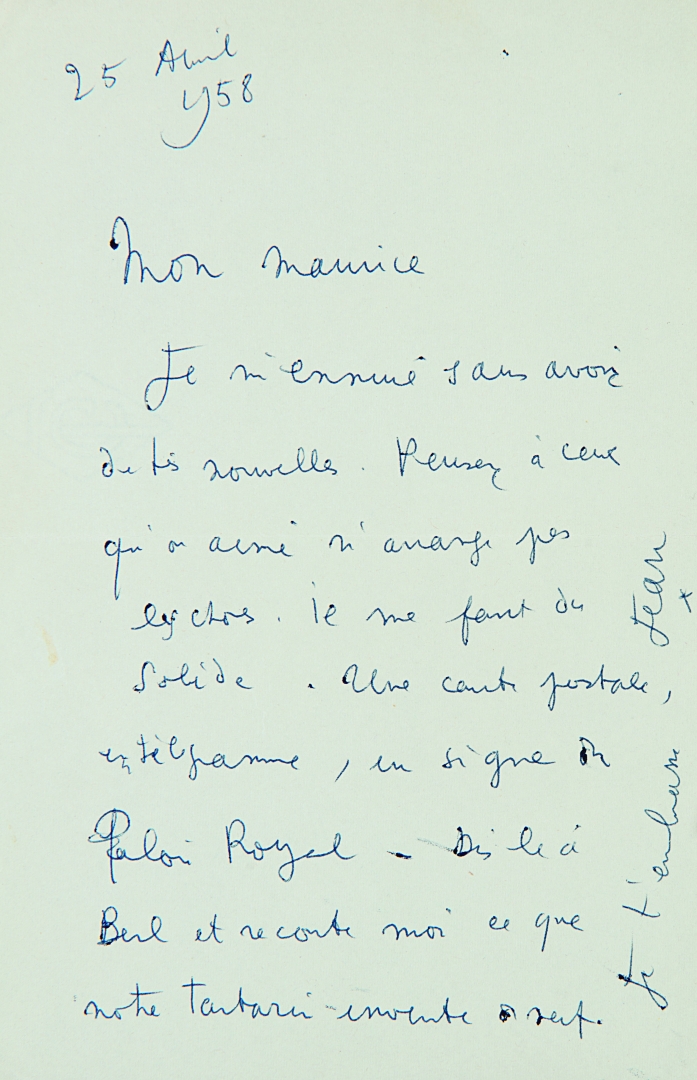 25 Avril
1958
Mon Maurice
Je m'ennuie sans avoir
de tes nouvelles. Penser à ceux
qu'on aime n'arrange pas
les choses. Il me faut du
solide. Une carte postale,
un télégramme, un signe du
Palais Royal - Dis le à
Berl et raconte moi ce que
notre Tartarin invente de neuf.
Je t'embrasse
Jean